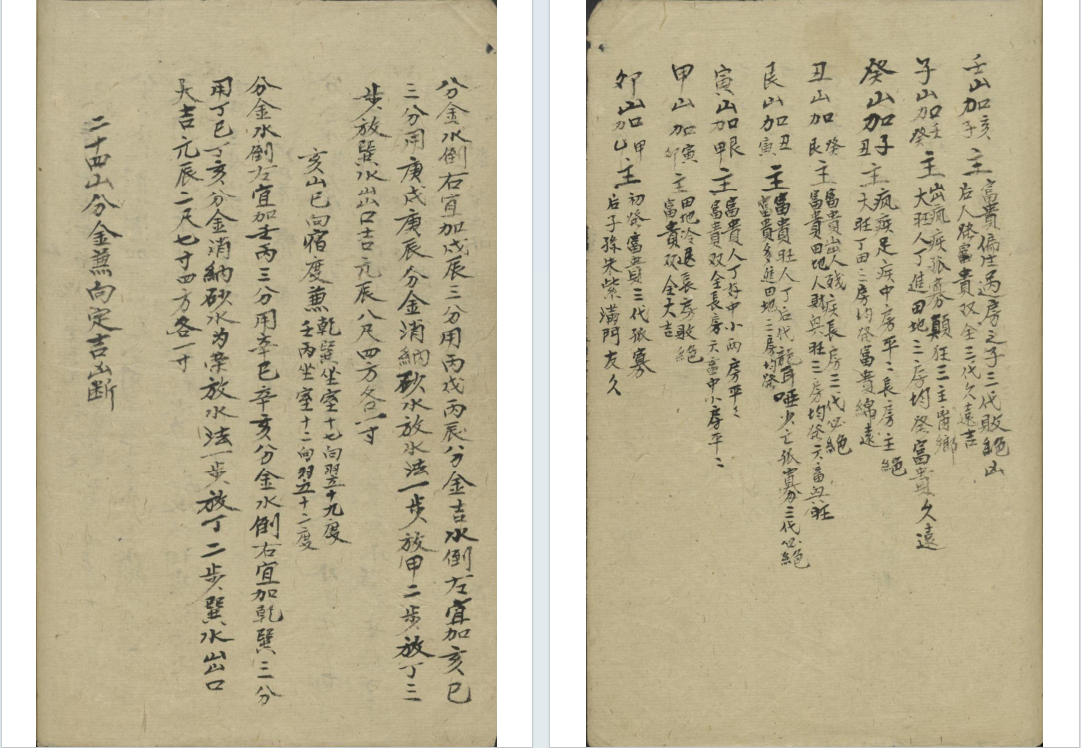 分金水倒右宜加戊辰三分用丙戌丙辰分金吉水倒左宜加亥巳
三分用庚戌庚辰分金消納砂水放水法一步放甲二步放丁三
步放巽水出口吉元辰八尺四方各一寸
亥山巳向宿度兼
乾巽坐室十七向翌十九度
壬丙坐室十二向翌五十二度
分金水倒左宜加壬丙三分用辛巳辛亥分金水倒右宜加乾巽三分
用丁巳丁亥分金消納砂水为荣放水法一步放丁二步巽水出口
大吉元辰二尺七寸四方各一寸
二十四山分金兼向定吉凶断
壬山加亥子主
富貴偏房之子三代敗絕凶
后人發富貴双全三代久遠吉
子山加壬癸主
出疯疾孤寡顛狂三主離鄉
大旺人丁進田地三房均發富貴久遠
癸山加子丑主
疯疾足疾中房平二長房主絕
大旺丁田三房均發富貴綿遠
丑山加癸艮主
富貴出人殘疾長房三代必絕
富貴田地人財與旺三房均發六畜與旺
艮山加丑寅主
富貴旺人丁后代龍耳啞少亡孤寡三代必絕
富貴多進田地三房均發
寅山加艮甲主
富貴人丁好中小兩房平々
富貴双全長房六畜中小房平二
甲山加寅卯主
田地冷退長房敗絕
富貴双全大吉
卯山加甲乙主
初發富貴三代孤寡
后子孫朱紫滿門友久